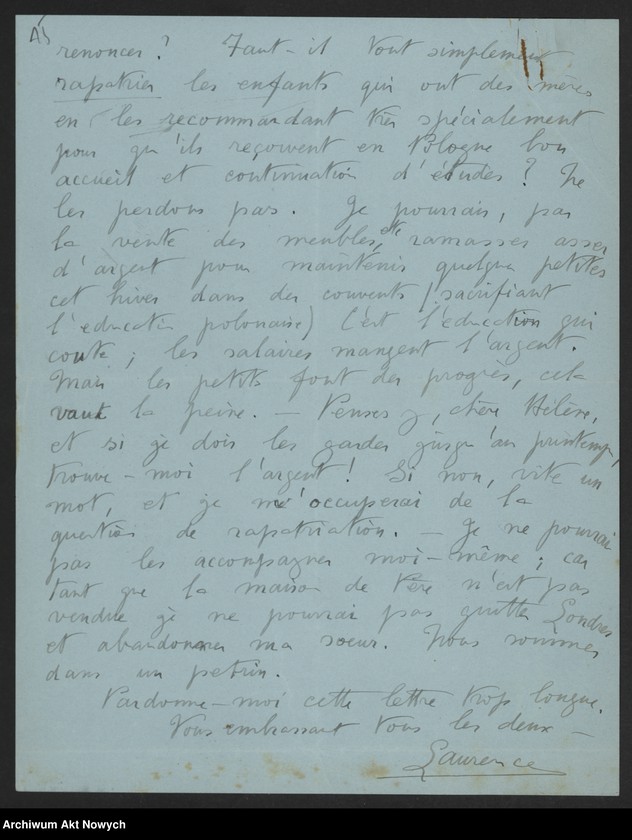 renoncer ? Faut-il tout simplement
rapatrier les enfants qui ont des mères
en les recommandant très spécialement
pour qu'ils reçoivent en Pologne bon
accueil et continuation d'études ? Ne
les perdons pas. Je pourrais, par
la vente des meubles, etc, ramasser assez
d'argent pour maintenir quelques petites
cet hiver dans des couvents (sacrifiant
l'éducation polonaise) C'est l'éducation qui
coute ; les salaires mangent l'argent.
Mais les petits font des progrès, cela
vaut la peine. — Penses y, chère Hélène,
et si je dois les garder jusqu'au printemps,
trouve-moi l'argent ! Si non, vite un
mot, et je m'occuperai de la
question de rapatriation. — Je ne pourrai
pas les accompagner moi-même ; car
tant que la maison de Père n'est pas
vendue je ne pourrai pas quitter Londres
et abandonner ma soeur. Nous sommes
dans un petrin.
Pardonne-moi cette lettre trop longue.
Vous embrassant tous les deux —
Laurence
Archiwum Akt Nowych